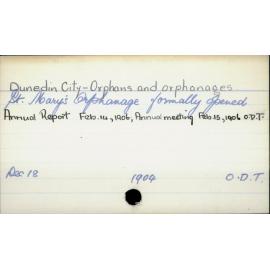 Dunedin City-Orphans and orphanages
St. Mary's Orphanage formally opened
Annual Report Feb. 14, 1906, Annual meeting Feb 15, 1906 O.D.T.
Dec 18 1904 O.D.T.